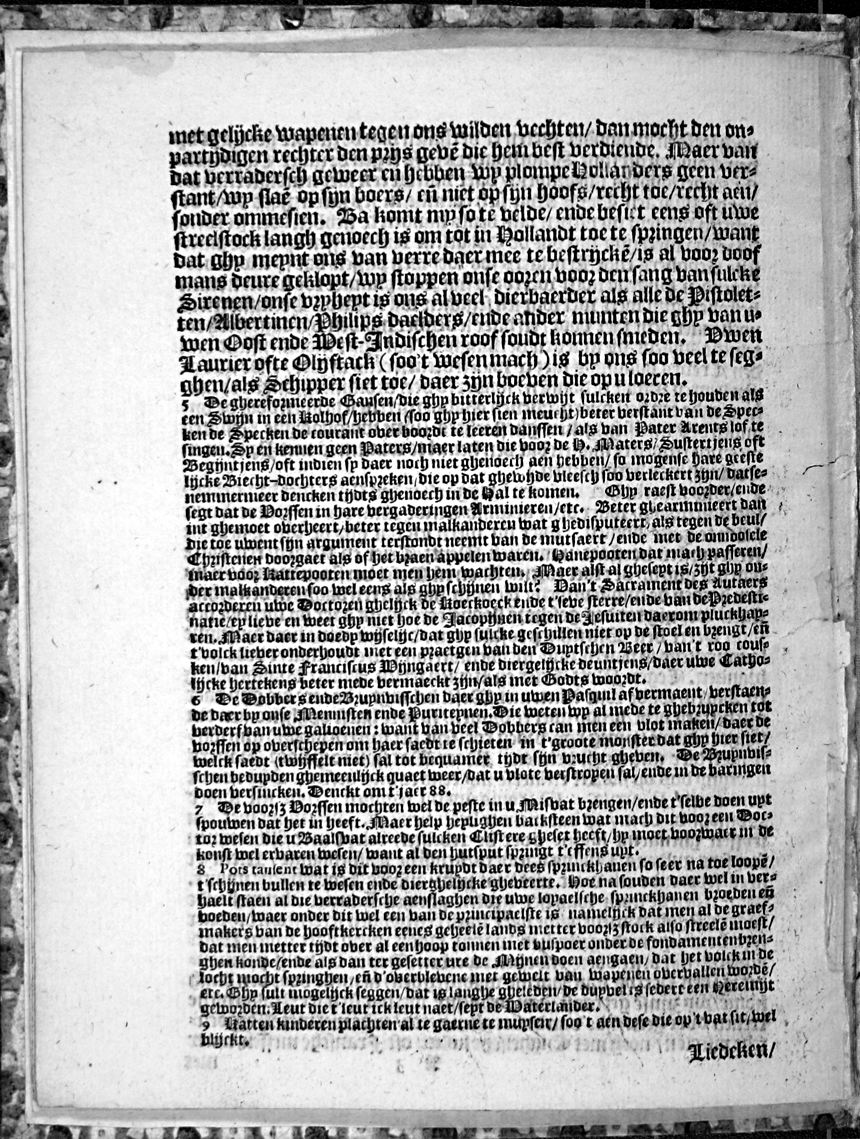 met gelijcke wapenen tegen ons wilden vechten/ dan mocht den on-
partijdigen rechter den prijs gevē die hem best verdiende. Maer van
dat verradersch geweer en hebben wy plompe Hollanders geen ver-
stant/wy slaē op sijn boers/ eñ niet op sijn hoofs/recht toe/recht aen/
sonder ommesien. Ba komt my so te velde/ ende besiet eens oft uwe
streelstock langh genoech is om tot in Hollandt toe te springen/want
dat ghy meynt ons van verre daer mee te bestrijckē/is al voor doof
mans deure geklopt/wy stoppen onse ooren voor den sang van sulcke
Sirenen/onse vryheyt is ons al veel dierbaerder als alle de Pistolet-
ten/Albertinen/Philips daelders/ende ander munten die ghy van u-
wen Oost ende West-Indischen roof soudt konnen smeden. Uwen
Laurier ofte Olijftack (soo't wesen mach) is by ons soo veel te seg-
ghen/als Schipper siet toe/ daer zijn boeven die op u loeren.
5 De ghereformeerde Gansen/die ghy bitterlijck verwijt sulcken ordre te houden als
een Swijn in een Kolhof/hebben (soo ghy hier sien meucht) beter verstant van de Spec-
ken de Specken de courant over boordt te leeren danssen/ als van Pater Arents lof te
singen. Sy en kennen geen Paters/maer laten die voor de H. Maters/Sustertjens oft
Begijntjens/oft indien sy daer noch niet ghenoech aen hebben/ so mogense hare geeste
lijcke Biecht-dochters aenspreken/die op dat ghewijde vleesch soo verleckert zijn/ datse-
nemmermeer dencken tijdts ghenoech in de Hal te komen. Ghy raest voorder/ende
segt dat de Vorssen in hare vergaderingen Arminieren/etc. Beter ghearminieert dan
int ghemoet overheert/beter tegen malkanderen wat ghedisputeert/als tegen de beul/
die toe uwent sijn argument terstondt neemt van de mutsaert/ende met de onnoosele
Christenen doorgaet als of het braen appelen waren. Hanepooten dat mach passeren/
maer voor Kattepooten moet men hem wachten. Maer alst al gheseyt is/zijt ghy on-
der malkanderen soo wel eens als ghy schijnen wilt? Van't Sacrament des Autaers
accorderen uwe Doctoren ghelijck de Koeckoeck ende t'seve sterre/ende van de Predesti-
natie/ey lieve en weet ghy niet hoe de Jacophnen tegen de Jesuiten daerom pluckhay-
ren. Maer daer in doedy wijselijc/dat ghy sulcke geschillen niet op de stoel en brengt/eñ
t'volck liever onderhoudt met een praetgen van den Duytschen Beer/ van't roo cous-
ken/van Sinte Franciscus Wijngaert/ ende diergelijcke deuntjens/daer uwe Catho-
lijcke hertekens beter mede vermaeckt zijn/als met Godts woordt.
6 De Dobbers ende Bruynvisschen daer ghy in uwen Pasquil af vermaent/ verstaen-
de daer by onse Mennisten ende Puriteynen. Die weten wy al mede te ghebruycken tot
verderf van uwe galioenen: want van veel Dobbers can men een vlot maken/ daer de
vorssen op overschepen om haer saedt te schieten in t'groote monster dat ghy hier siet/
welck saedt (twijffelt niet) sal tot bequamer tijdt sijn vrucht gheven. De Bruynvis-
schen beduyden ghemeenlijck quaet weer/dat u vlote verstropen sal/ende in de baringen
doen versincken. Denckt om t'jaer 88.
7 De voorsz Vorssen mochten wel de peste in u Misvat brengen/ende t'selve doen uyt
spouwen dat het in heeft. Maer help heylighen backsteen wat mach dit voor een Doc-
tor wesen die u Baalsvat alreede sulcken Clistere gheset heeft/hy moet voorwaer in de
konst wel ervaren wesen/ want al den hutsput springt t'effens uyt.
8 Pots tausent wat is dit voor een kruydt daer dees sprinckhanen so seer na toe loopē/
t'schijnen bullen te wesen ende dierghelijcke ghebeerte. Hoe na souden daer wel in ver-
haelt staen al die verradersche aenslaghen die uwe lopaelsche sprinckhanen broeden eñ
voeden/waer onder dit wel een van de principaelste is namelijck dat men al de graef-
makers van de hooftkercken eenes geheelē lands metter voorsz stock also streelē moest/
dat men metter tijdt over al een hoop tonnen met buspoer onder de fondamenten bren-
ghen konde/ende als dan ter gesetter ure de Mijnen doen aengaen/ dat het volck in de
locht mocht springhen/ eñ d'overblevene met gewelt van wapenen overvallen wordē/
etc. Ghy sult mogelijck seggen/dat is langhe gheleden/de duyvel is sedert een Heremijt
geworden. Leut die t'leut ick leut naet/seyt de Waterlander.
9 Katten kinderen plachten al te gaerne te muysen/ soo't aen dese die op't vat sit/wel
blijckt.
Liedeken/